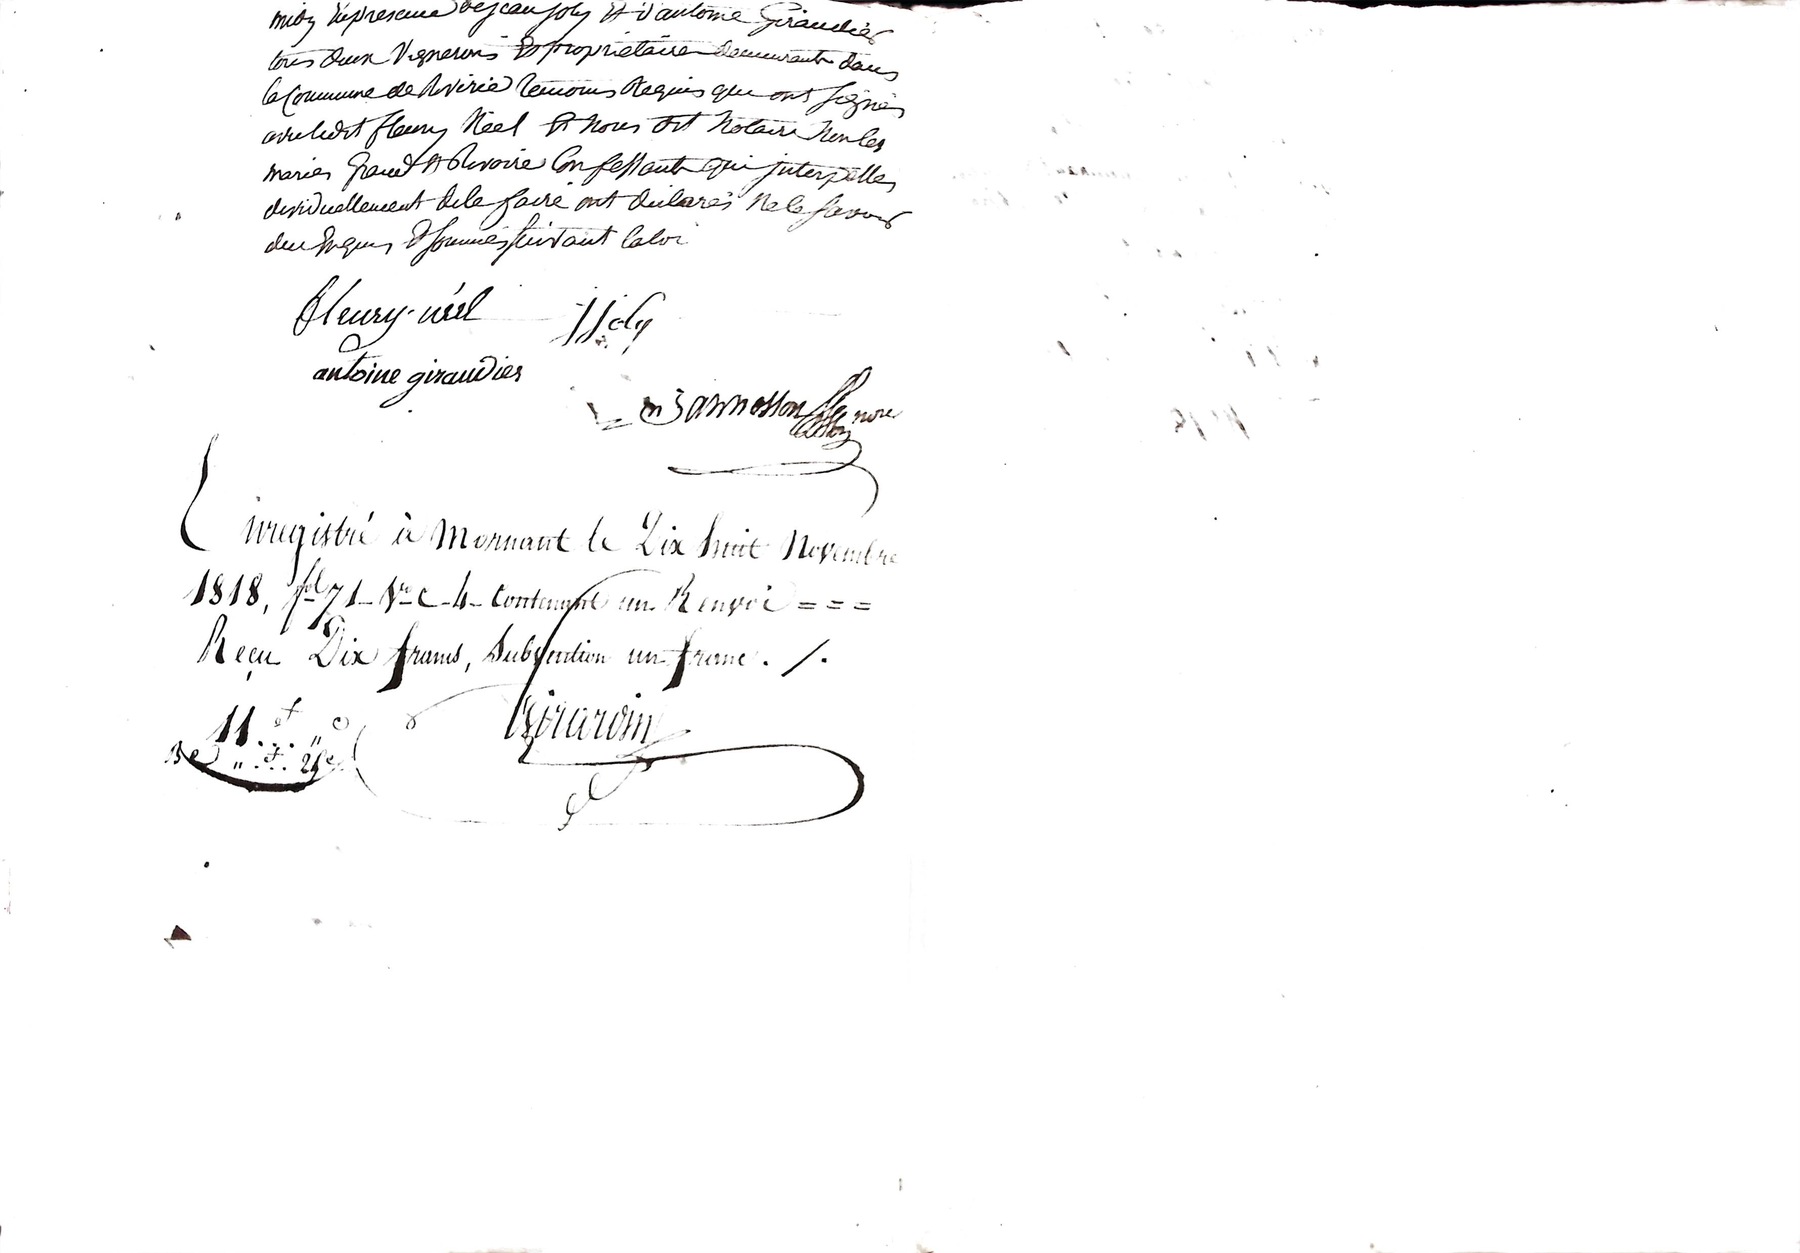 midy En presence de jean joly Et d'antoine Giraudier
tous deux Vignerons Et propriétaires demeurants dans
la Commune de Riverie temoins Requis que ont signés
avec ledit fleury Néel Et Nous dit Notaire Non les
maries Et Rivoire Confessants qui interpellés
dividuellement de le faire ont declarés Ne le savoir
de Enquis Et sommés suivant la loi
fleury néel JJoly
antoine giraudier
nore
Enregistré à Mornant le Dix huit Novembre
1818, fol 71 Vo C 4 Contenant un Renvoi = = =
Reçu Dix francs, Subvention un franc . / .
11 f . . . " c
Girardin
" f . . . 25 c